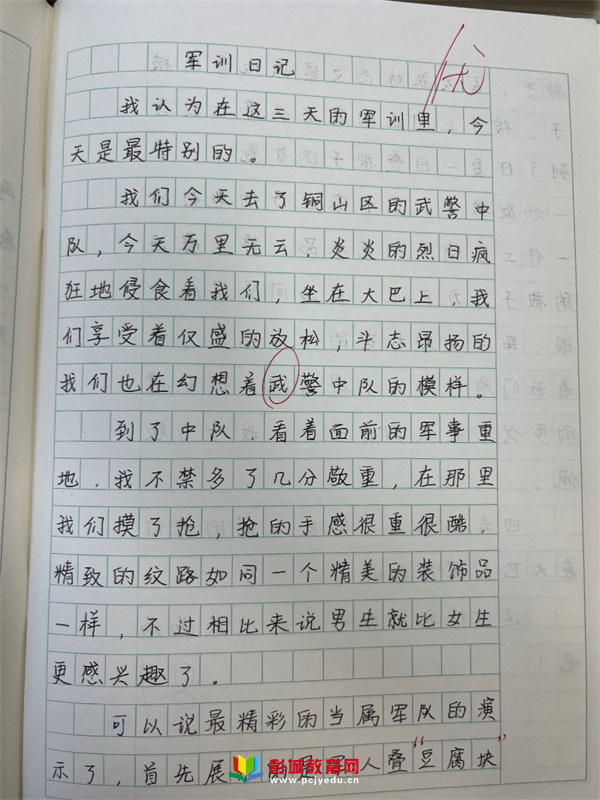 军训日记
优
我认为在这三天的军训里，今
天是最特别的。
我们今天去了铜山区的武警中
队，今天万里无云，炎炎的烈日疯
狂地侵食着我们，坐在大巴上，我
们享受着仅盛的放松，斗志昂扬的
我们也在幻想着武警中队的模样。
到了中队，看着面前的军事重
地，我不禁多了几分敬重，在那里
我们摸了抢，抢的手感很重很酷，
精致的纹路如同一个精美的装饰品
一样，不过相比来说男生就比女生
更感兴趣了。
可以说最精彩的当属军队的演
示了，首先展军人叠“豆腐块”
彭城教育网
www.pcjyedu.cn